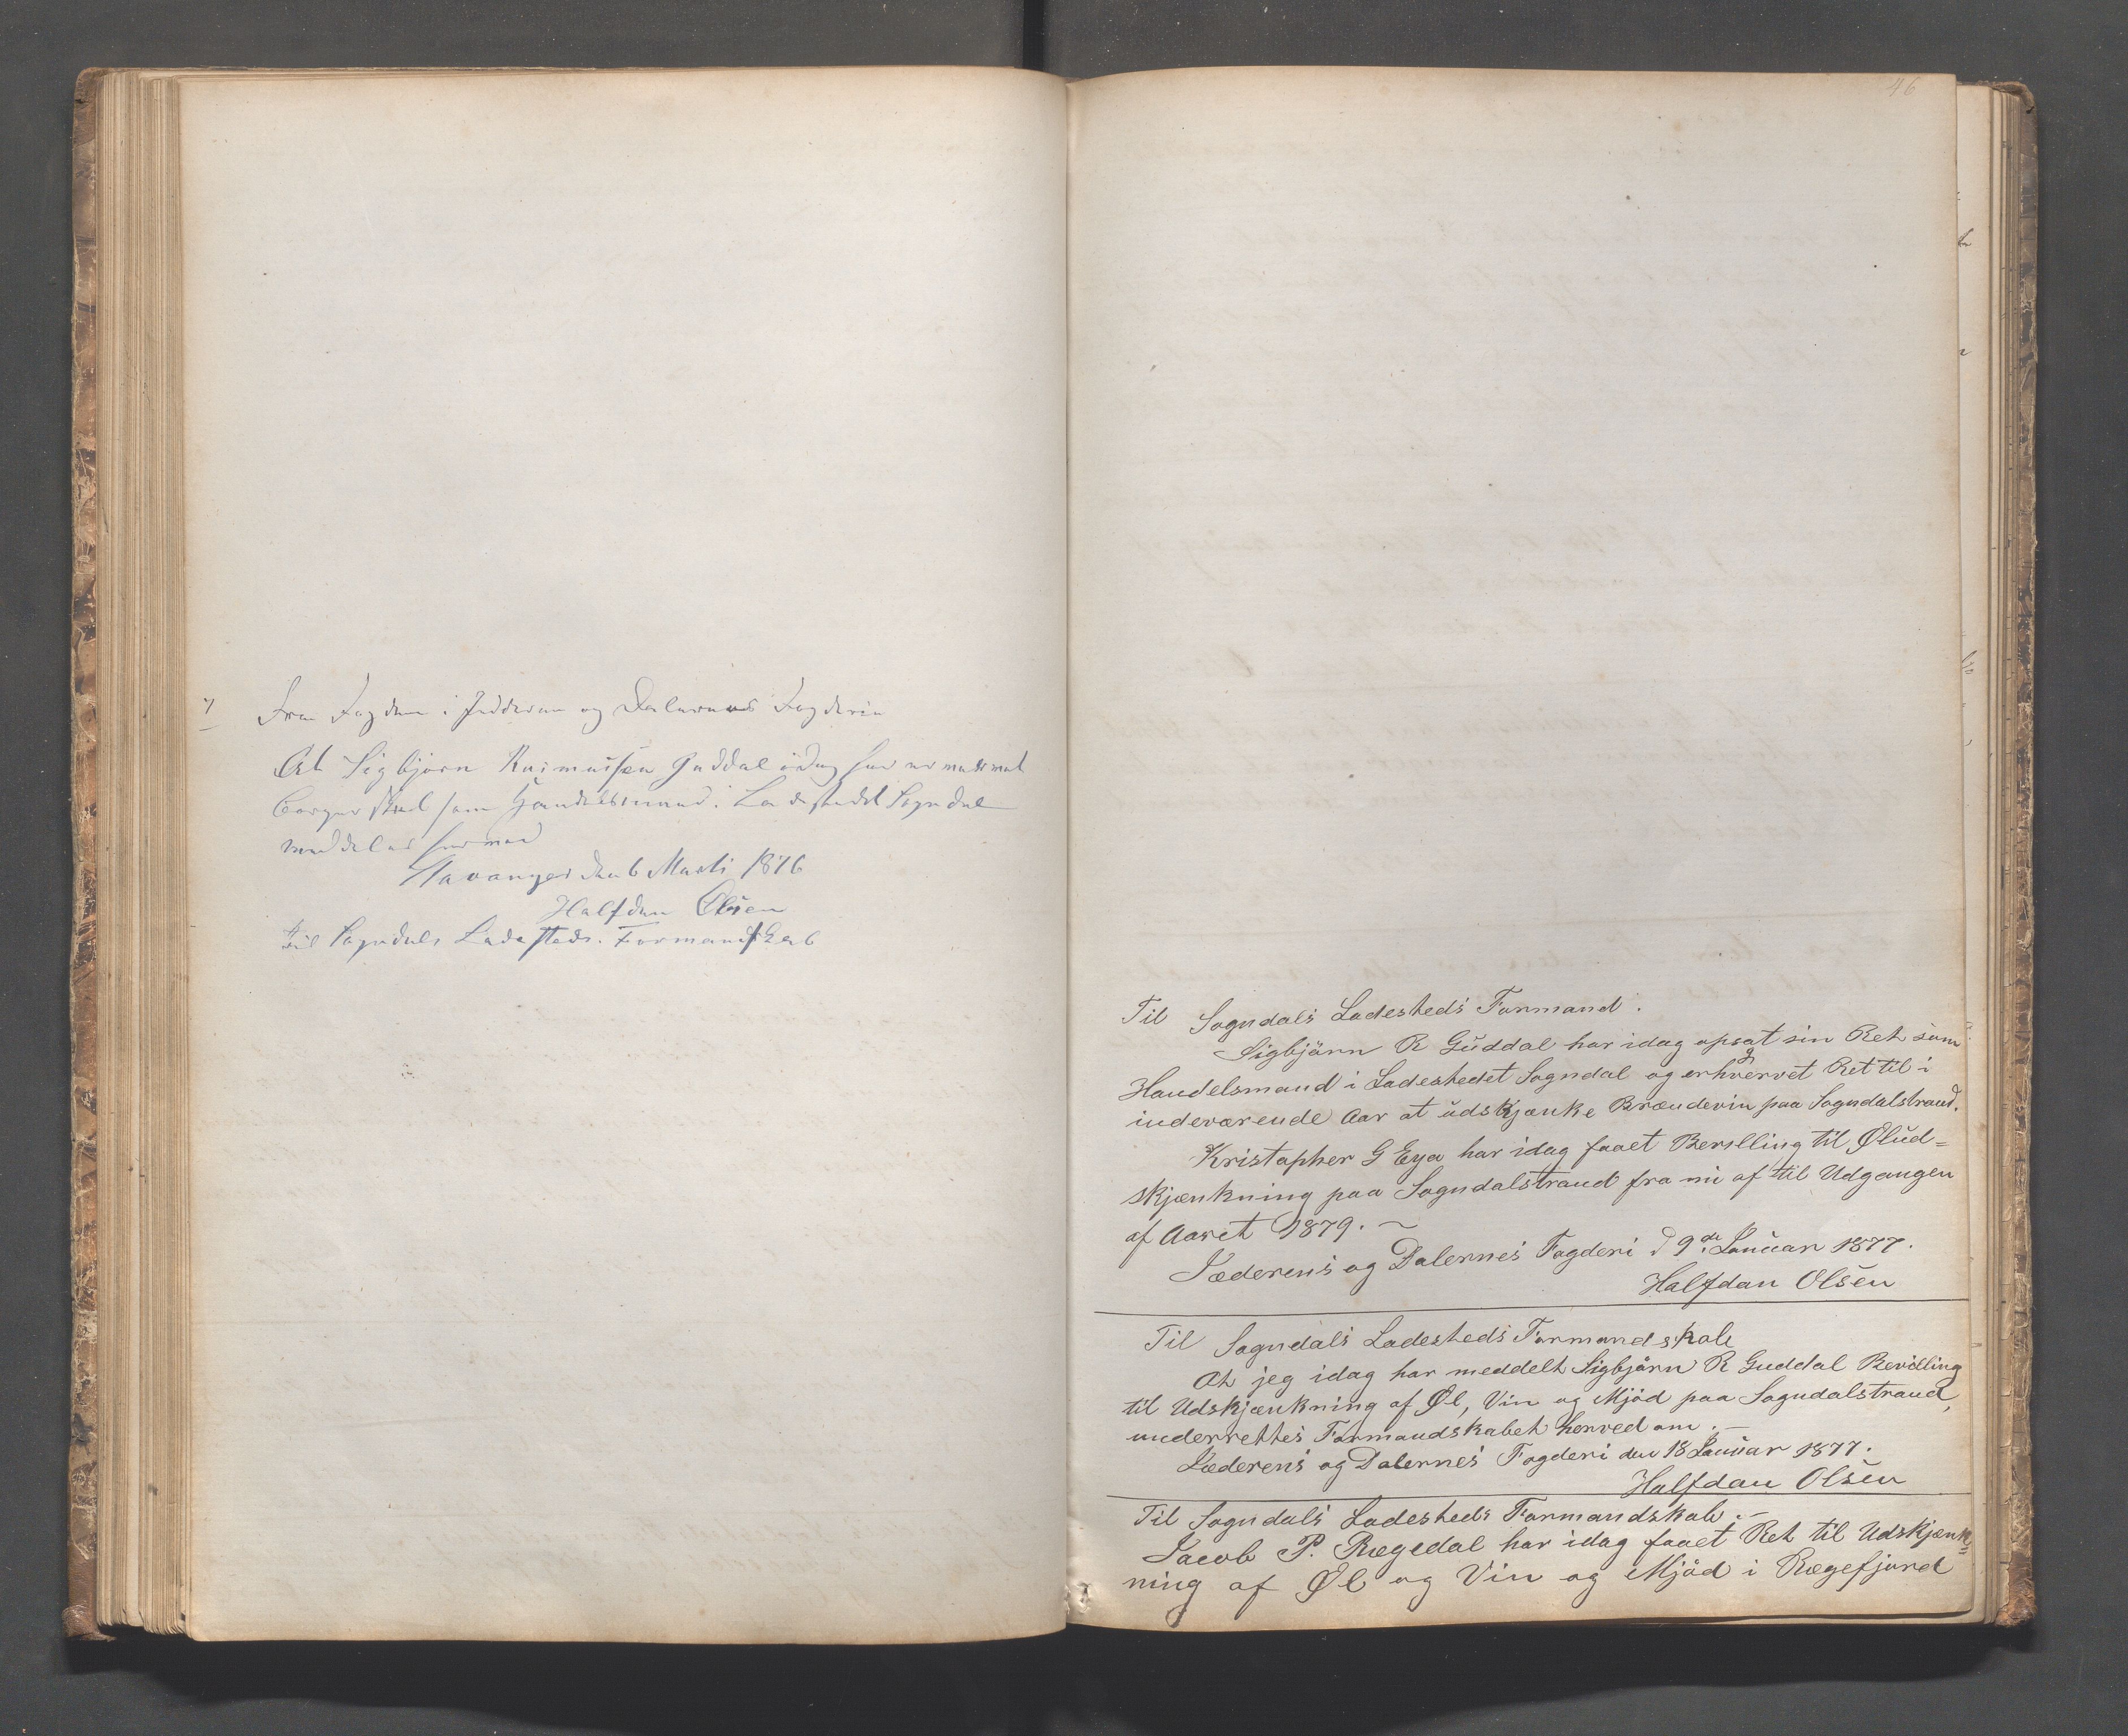 7 Fra Fogden i Jedderen og Dalernes Fogderie
At Sigbjørn Rasmussen Guddal idag har
Borgerskab som Handelsmand i Ladestedet Sogndal
meddeles hermed
Stavanger den 6 Marts 1876
Halfdan Olsen
Til Sogndals Ladesteds Formandskab
46
Til Sogndals Ladesteds Formand.
Sigbjörn R Guddal har idag opsat sin Ret som
Handelsmand i Ladestedet Sogndal og erhvervet Ret til i
indeværende Aar at udskjænke Brændevin paa Sogndalstrand.
Kristopher G Eya har idag faaet Bevilling til Ølud=
skjænkning paa Sogndalstrand fra nu af til Udgangen
af Aaret 1879. ~
Jæderens og Dalernes Fogderi d 9de Januar 1877.
Halfdan Olsen
Til Sogndals Ladesteds Formandskab
At jeg idag har meddelt Sigbjörn R Guddal Bevilling
til Udskjænkning af Øl, Vin og Mjöd paa Sogndalstrand,
underrettes Formandskabet herved om. —
Jæderens og Dalernes Fogderi den 18 Januar 1877.
Halfdan Olsen
Til Sogndals Ladesteds Formandskab. —
Jacob P. Rægedal har idag faaet Ret til Udskjænk=
ning af Øl og Vin og Mjöd i Rægefjord